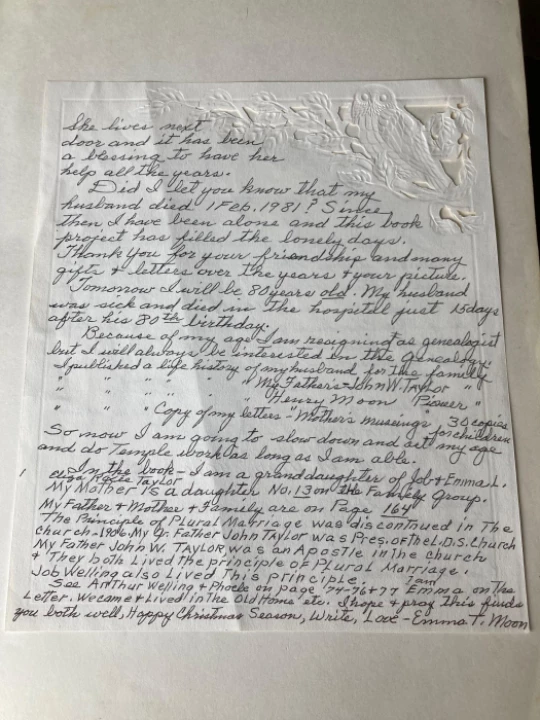 She lives next
door and it has been
a blessing to have her
help all the years.
Did I let you know that my
husband died 1 Feb. 1981? Since
then I have been alone and this book
project has filled the lonely days.
Thank you for your friendship and many
gifts + letters over the years + your picture.
Tomorrow I will be 80 years old. My husband
was sick and died in the hospital just 15 days
after his 80th birthday.
Because of my age I am resigning as genealogist
but I will always be interested in the Genealogy.
I published a life history of my husband for the family
" " " " " " My Father - John W. TAYLOR "
" " " " " Henry Moon "Pioneer"
" " " Copy of my letters - "Mother's musings" 30 copies
for children
So now I am going to slow down and act my age
and do Temple work as long as I am able.
In the book - I am a granddaughter of Job + Emma L.
Rosie Taylor
My Mother is a daughter No. 13 on the Family Group.
My Father + Mother + Family are on Page 164
The Principle of Plural Marriage was discontinued in The
Church - 1906. My Gr. Father John Taylor was Pres. of The L.D.S. Church
My Father John W. TAYLOR, was an Apostle in the church
+ They both Lived the principle of Plural Marriage.
Job Welling also Lived This principle.
I am
See Arthur Welling + Phoebe on page 74-76+77 Emma on This
Letter. We came + Lived in The Old Home etc. I hope + pray this finds
you both well, Happy Christmas Season, Write, Love - Emma T. Moon